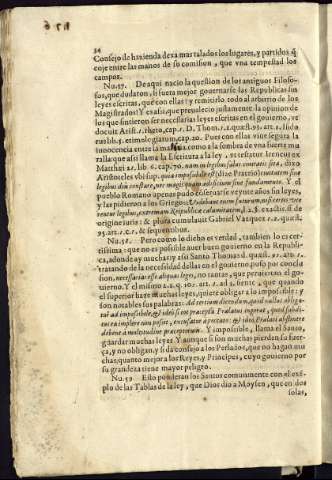 34
Consejo de hazienda dexa mas talados los lugares, y partidos q̃
coje entre las manos de so comision, que vna tempestad los
campos.
Num. 57. De aqui nacio la question de los antiguos Filoso-
fos, que dudaron, si fuera mejor governarse las Republicas sin
leyes escritas, que con ellas? y remitirlo todo al arbitrio de los
Magistrados? Y casi, que preualecio justamente la opinion de
los que sintieron ser necessarias leyes escritas en el gouierno, ve
docuit Arist. 1. rhato, cap. 1. D. Thom. 1. 2. quæst. 95. art. 1. Isido
rus lib. 5. etimologiarum, cap. 20. Pues con ellas viue segura la
innocencia entre la malicia como a la sombra de vna fuerte mu
ralla: que assi llama la Escritura a la ley
Matthæi 22. lib. 6. cap. 70. nam in legibus salus ciuitatis sita est, dixo
Aristoteles vbi sup. quia impossibile est (dixo Platon)
legibus diu constare, nec magistratus
pueblo Romano apenas pudo conseruarse veynte años sin leyes,
y las pidieron a los Griegos:
origine iuris: & plura cumulauit Gabriel Vazquez 1. 2. quæst.
95. art. 1. c. & sequentibus.
Num. 58. Pero como lo dicho es verdad, tambien lo es cer-
tissima: que no es possible auer buen gouierno en la Republi-
ca, adonde ay muchas: y assi Santo Thomas d. quæst. 95. art. 1.
tratando de la necesidad dellas en el gouierno puso por concla
sion, necessarias esse aliquas leges, no tantas, que peruiertan el go-
uierno. Y el mismo 2. 2. q. 105. art. 1. ad 3. siente, que quando
el superior haze muchas leyes, quiere obligar a lo impossible: y
son notables sus palabras: Ad tertium dicendum, quod nullus obliga-
tur ad impossibile, & ideo si tot præcepta Prælatus ingerat, quod subdi-
tus ea implere non possit, excusatur a peccato: & ideo Prælati abstinere
debent a multitudine præceptorum. Y impossible, llama el Santo,
guardar muchas leyes: Y aunque si son muchas pierden su fuer-
ça, y no obligan, y si da consejo a los Perlados, que no hagan mu
chas; quanto mejor a los Reyes, y Principes, cuyo gouierno por
su grandeza tiene mayor peligro.
Num. 59. Esto ponderan los Santos comunmente con el exẽ
plo de las Tablas de la ley, que Dios dio a Moysen, que en dos
solas,